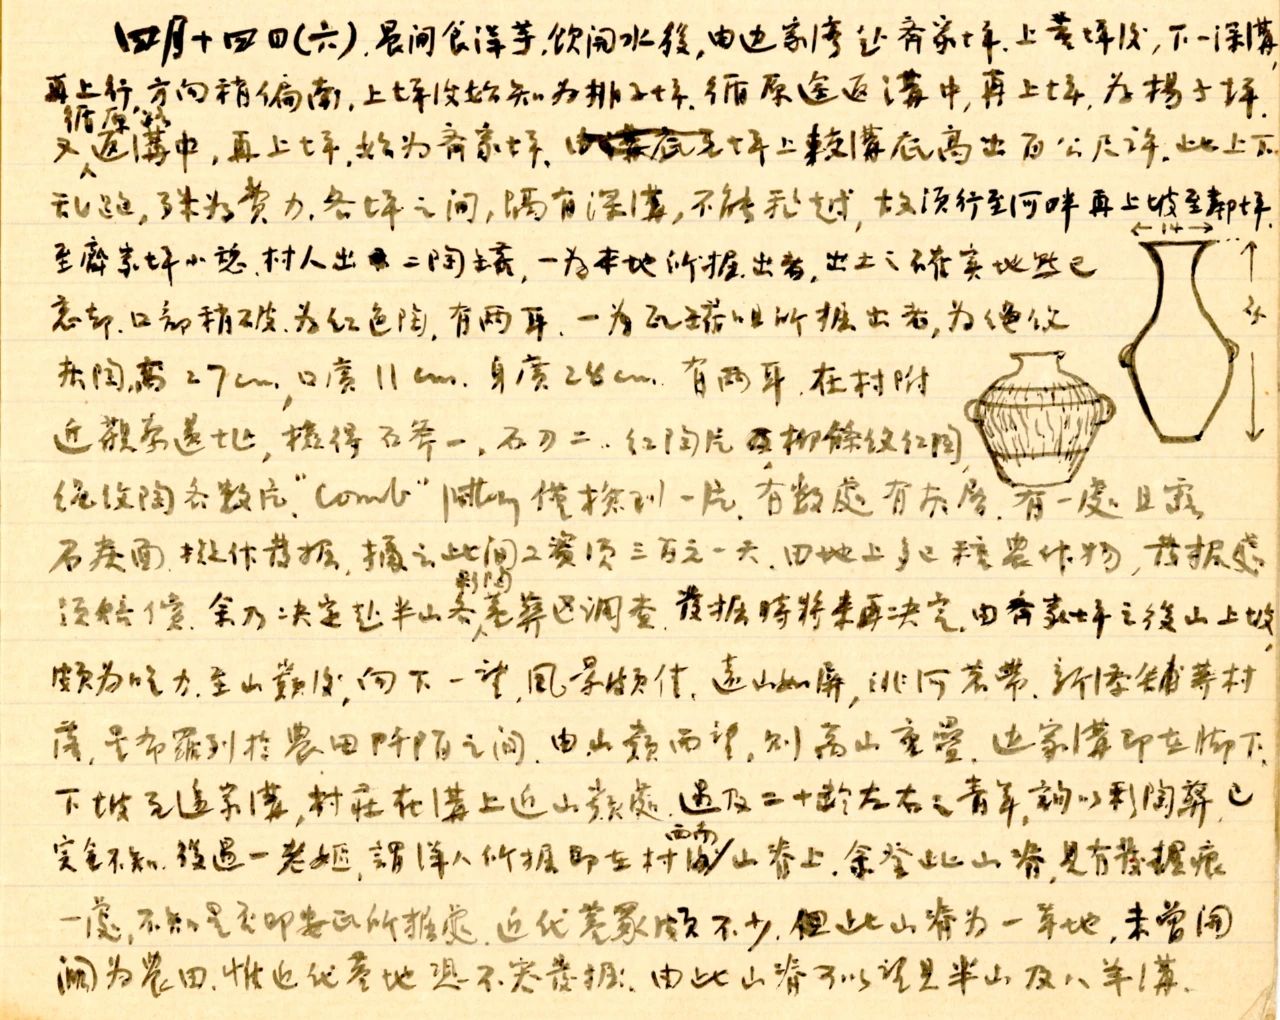 四月十四日(六).晨间食洋芋,饮开水後,由边家湾赴齐家坪.上黄坪后,下一深溝,
再上行,方向稍偏南,上坪后始知为排子坪.循原途返溝中,再上坪,为楊子坪.
循原路
又返溝中,再上坪,始为齐家坪.坪上較溝底高出百公尺许.此上下
乱跑,殊为費力.各坪之间,隔有深溝,不能飛越,故须行至河畔再上坡至鄰坪.
14
至齊家坪小憩.村人出二陶罐,一为本地所掘出者,出土之確实地點已
忘却.口部稍破.为红色陶,有两耳.一为瓦罐咀所掘出者,为绳纹
灰陶,高27cm,口廣11cm.身廣28cm.有两耳.在村附
近觀察遺址,撿得石斧一,石刀二.红陶片柳條纹红陶,
绳纹陶各数片."Comb" pottery僅撿到一片.有数處有灰层.有一處且露
石灰面.擬作发掘,據云此间工資须三百元一天.田地上多已種農作物,发掘处
彩陶
须賠償.余乃决定赴半山各墓葬区調查.发掘時将来再决定.由齐家坪之後山上坡,
頗为吃力.至山巔后,向下一望,風景頗佳.遠山如屏,洮河若帶.新添鋪等村
落,星布羅列於農田阡陌之间.由山巔西望,则高山重疊.边家溝即在脚下.
下坡至边家溝,村莊在溝上近山巔處.遇及二十龄左右之青年,詢以彩陶葬,已
西南
完全不知.後遇一老嫗,謂洋人所掘即在村山脊上.余登此山脊,見有发掘痕
一處,不知是否即安氏所掘處.近代墓冢頗不少.但此山脊为一草地,未曾開
闢为農田.惟近代墓地恐不容发掘.由此山脊可以望見半山及八羊溝.